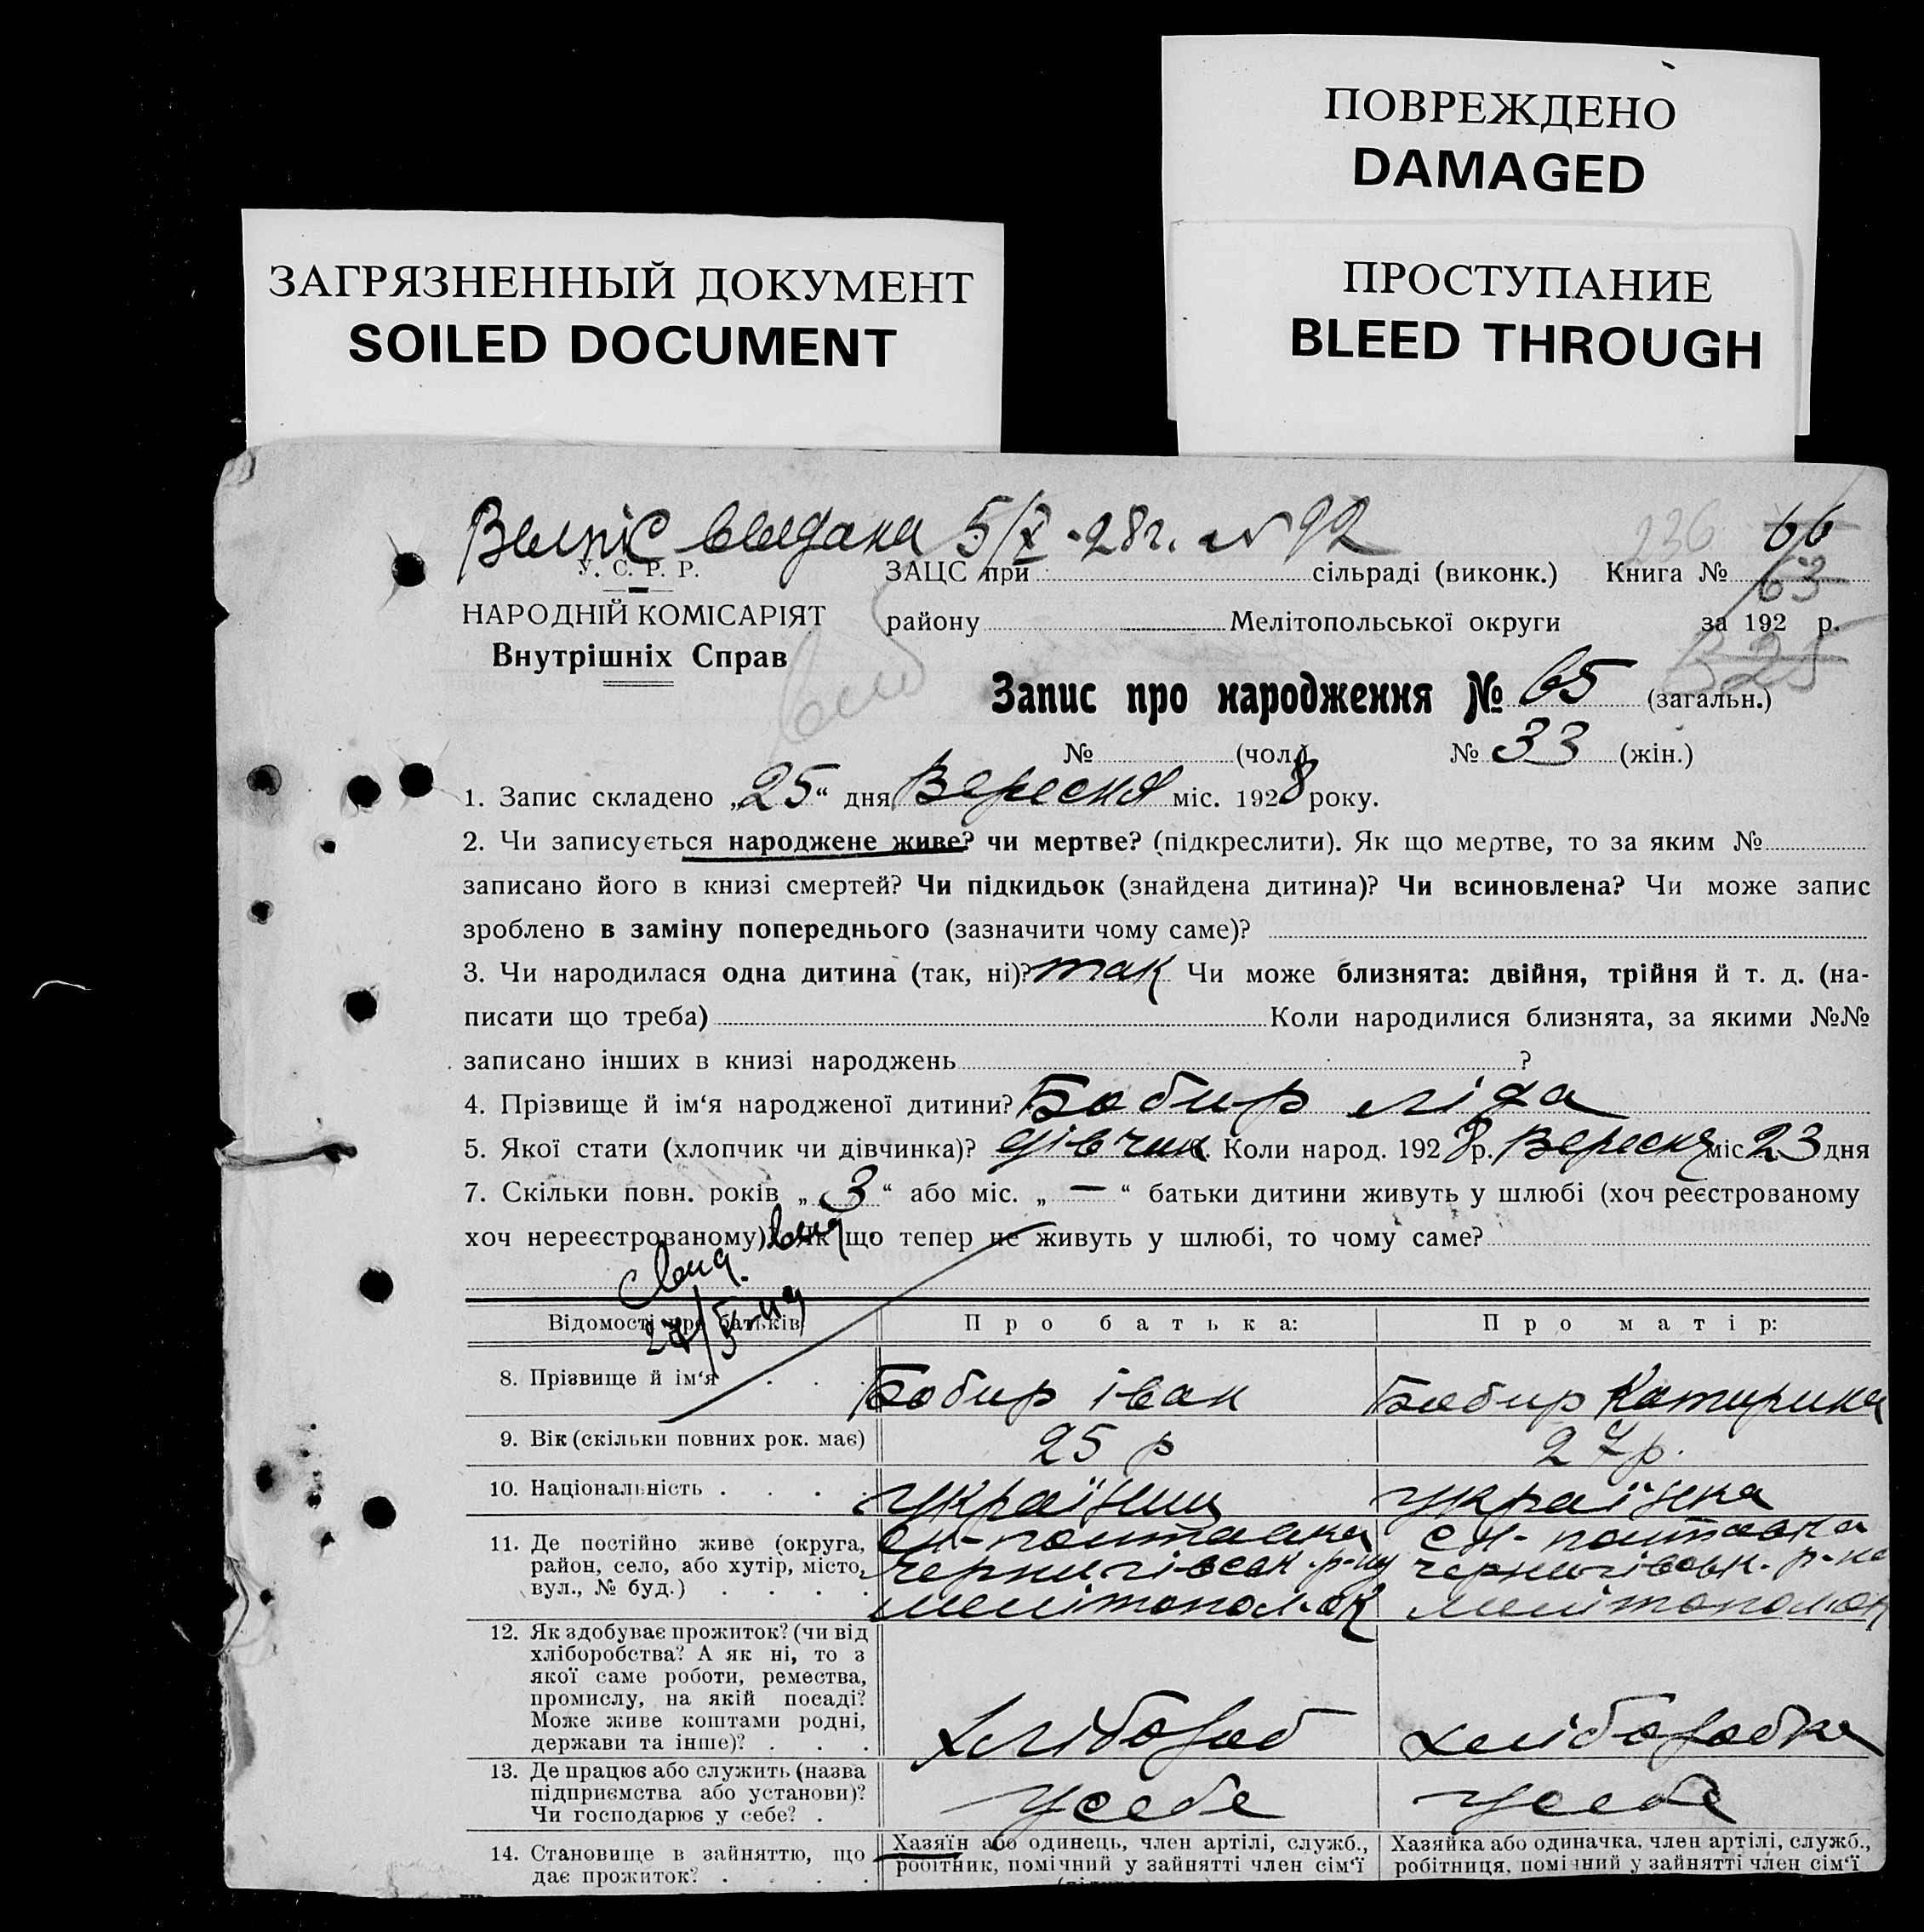 ПОВРЕЖДЕНО
DAMAGED
ЗАГРЯЗНЕННЫЙ ДОКУМЕНТ
SOILED DOCUMENT
ПРОСТУПАНИЕ
BLEED THROUGH
Випис видана 5/X-28г. № 92
236 66
У. С. Р. Р.
НАРОДНІЙ КОМІСАРІЯТ
Внутрішніх Справ
ЗАЦС при сільраді (виконк.) Книга № 63
району Мелітопольської округи за 192 р.
В 25
Запис про народження № 65 (загальн.)
№ (чол.) № 33 (жін.)
1. Запис складено „25“ дня Вересня міс. 1928 року.
2. Чи записується народжене живе? чи мертве? (підкреслити). Як що мертве, то за яким №
записано його в книзі смертей? Чи підкидьок (знайдена дитина)? Чи всиновлена? Чи може запис
зроблено в заміну попереднього (зазначити чому саме)?
3. Чи народилася одна дитина (так, ні)? так Чи може близнята: двійня, трійня й т. д. (на-
писати що треба) Коли народилися близнята, за якими №№
записано інших в книзі народжень ?
4. Прізвище й ім‘я народженої дитини? Бобир Ліда
5. Якої стати (хлопчик чи дівчинка)? дівчин. Коли народ. 1928 р. Вересня міс. 23 дня
7. Скільки повн. років „ 3 “ або міс. „ — “ батьки дитини живуть у шлюбі (хоч реєстрованому
хоч нереєстрованому)? Як що тепер не живуть у шлюбі, то чому саме?
Відомості про батьків Про батька: Про матір:
8. Прізвище й ім‘я . . . Бобир Іван Бобир Катирина
9. Вік (скільки повних рок. має) 25 р 27 р.
10. Національність . . . . українц українка
11. Де постійно живе (округа, район, село, або хутір, місто, вул., № буд.) . . . .
Черниговск. р-ну
Мелітопол. ок
12. Як здобуває прожиток? (чи від хліборобства? А як ні, то з якої саме роботи, ремества, промислу, на якій посаді? Може живе коштами родні, держави та інше)? . . . Хлібороб хліборобка
13. Де працює або служить (назва підприємства або установи)? Чи господарює у себе? . У себе У себе
14. Становище в зайняттю, що дає прожиток? . . . .
Хазяїн або одинець, член артілі, служб., робітник, помічний у зайнятті член сім‘ї
Хазяйка або одиначка, член артілі, служб., робітниця, помічний у зайнятті член сім‘ї